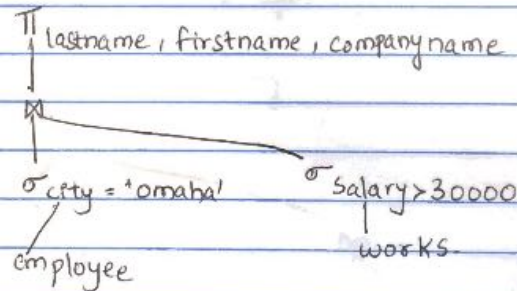 π lastname, firstname, companyname
⋈
σ city = 'omaha' σ salary>30000
employee works.